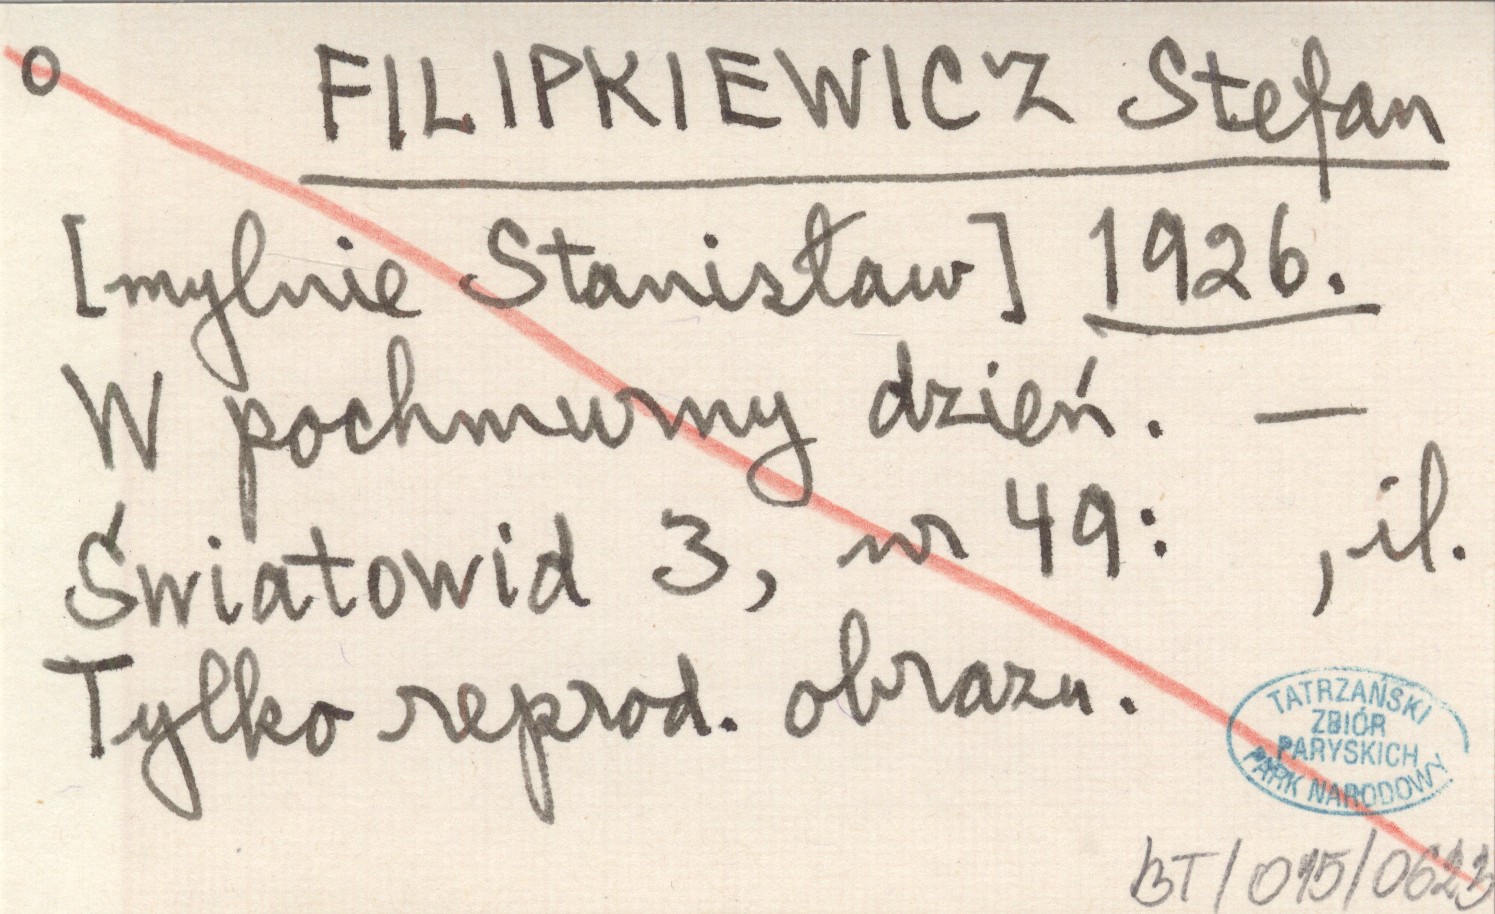 o FILIPKIEWICZ Stefan
[mylnie Stanisław] 1926.
W pochmurny dzień. —
Światowid 3, nr 49: , il.
Tylko reprod. obrazu.
TATRZAŃSKI
ZBIÓR
PARYSKICH
PARK NARODOWY
BT/015/0623